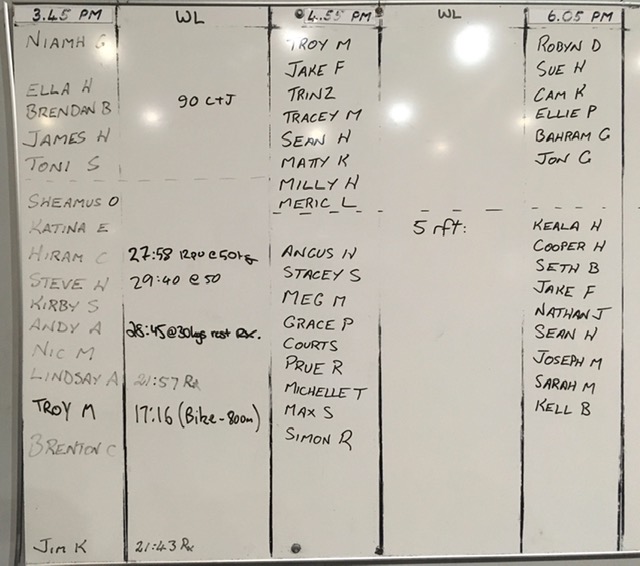 3.45 PM
NIAMH G
ELLA H
BRENDAN B
JAMES H
TONI S
SHEAMUS O
KATINA E
HIRAM C
STEVE H
KIRBY S
ANDY A
NIC M
LINDSAY A
TROY M
BRENTON C
JIM K
WL
90 C+J
27:58 @ 50kg
29:40 @ 50
28:45 @ 30kgs rest RX.
21:57 Rx
17:16 (Bike - 800m)
21:43 Rx
4.55 PM
TROY M
JAKE F
TRINZ
TRACEY M
SEAN H
MATTY K
MILLY H
MERIC L
ANGUS H
STACEY S
MEG M
GRACE P
COURTS
PRUE R
MICHELLE T
MAX S
SIMON R
WL
5 rft:
6.05 PM
ROBYN D
SUE H
CAM K
ELLIE P
BAHRAM G
JON G
KEALA H
COOPER H
SETH B
JAKE F
NATHAN J
SEAN H
JOSEPH M
SARAH M
KELL B